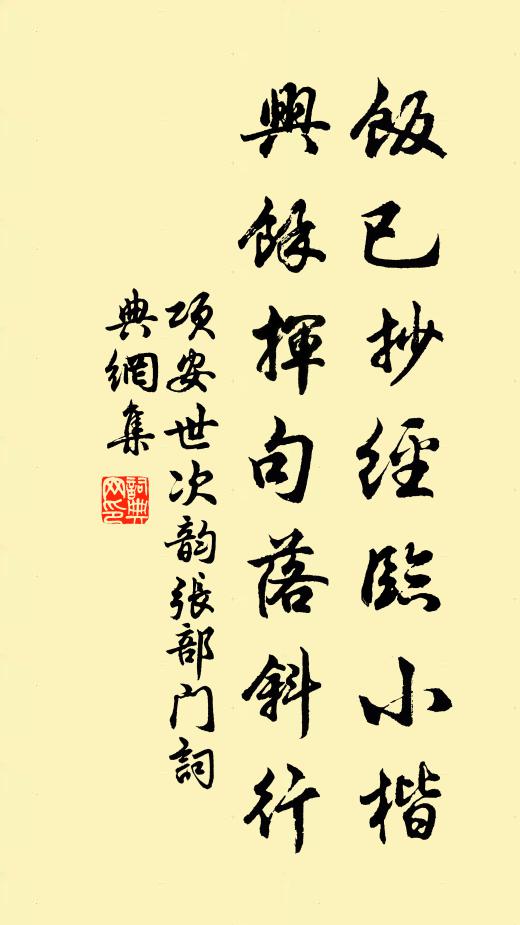 飯已抄經臨小楷
興餘揮句落斜行
項安世次韵張部门詞
典網集
詞典網印